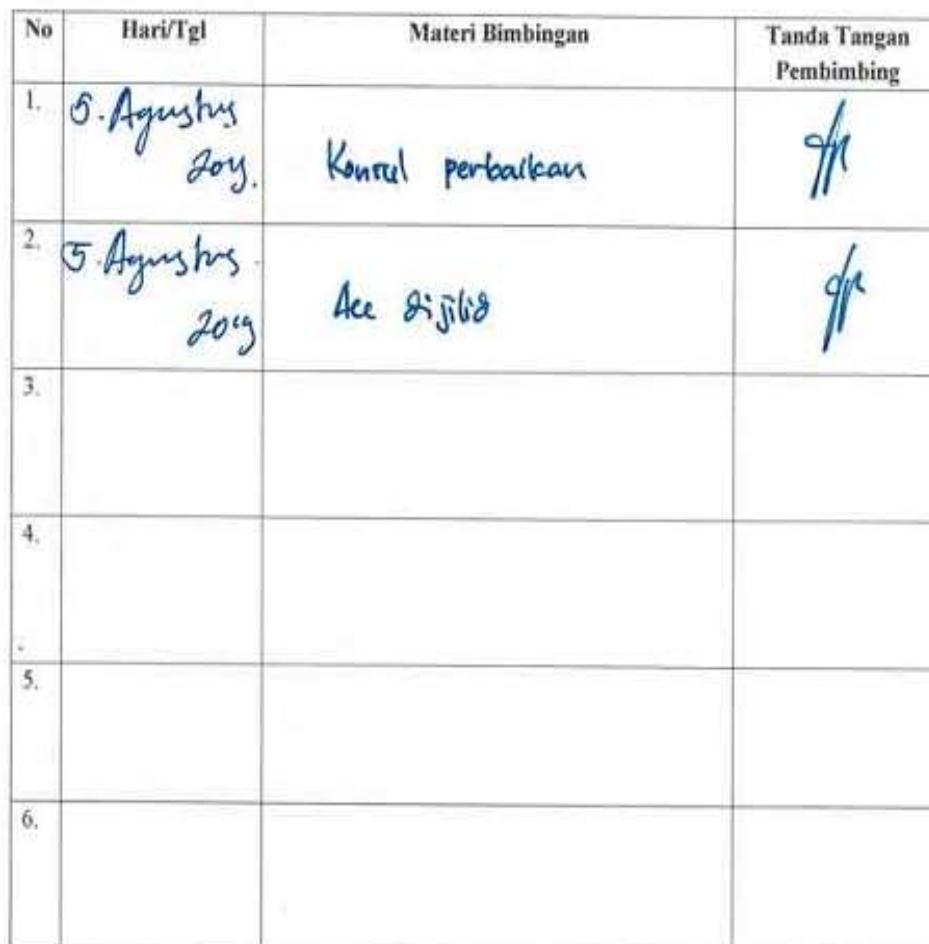 No Hari/Tgl Materi Bimbingan Tanda Tangan
Pembimbing
1. 5. Agustus
2019. Konsul perbaikan
2. 5. Agustus
2019 Acc dijilid
3.
4.
5.
6.